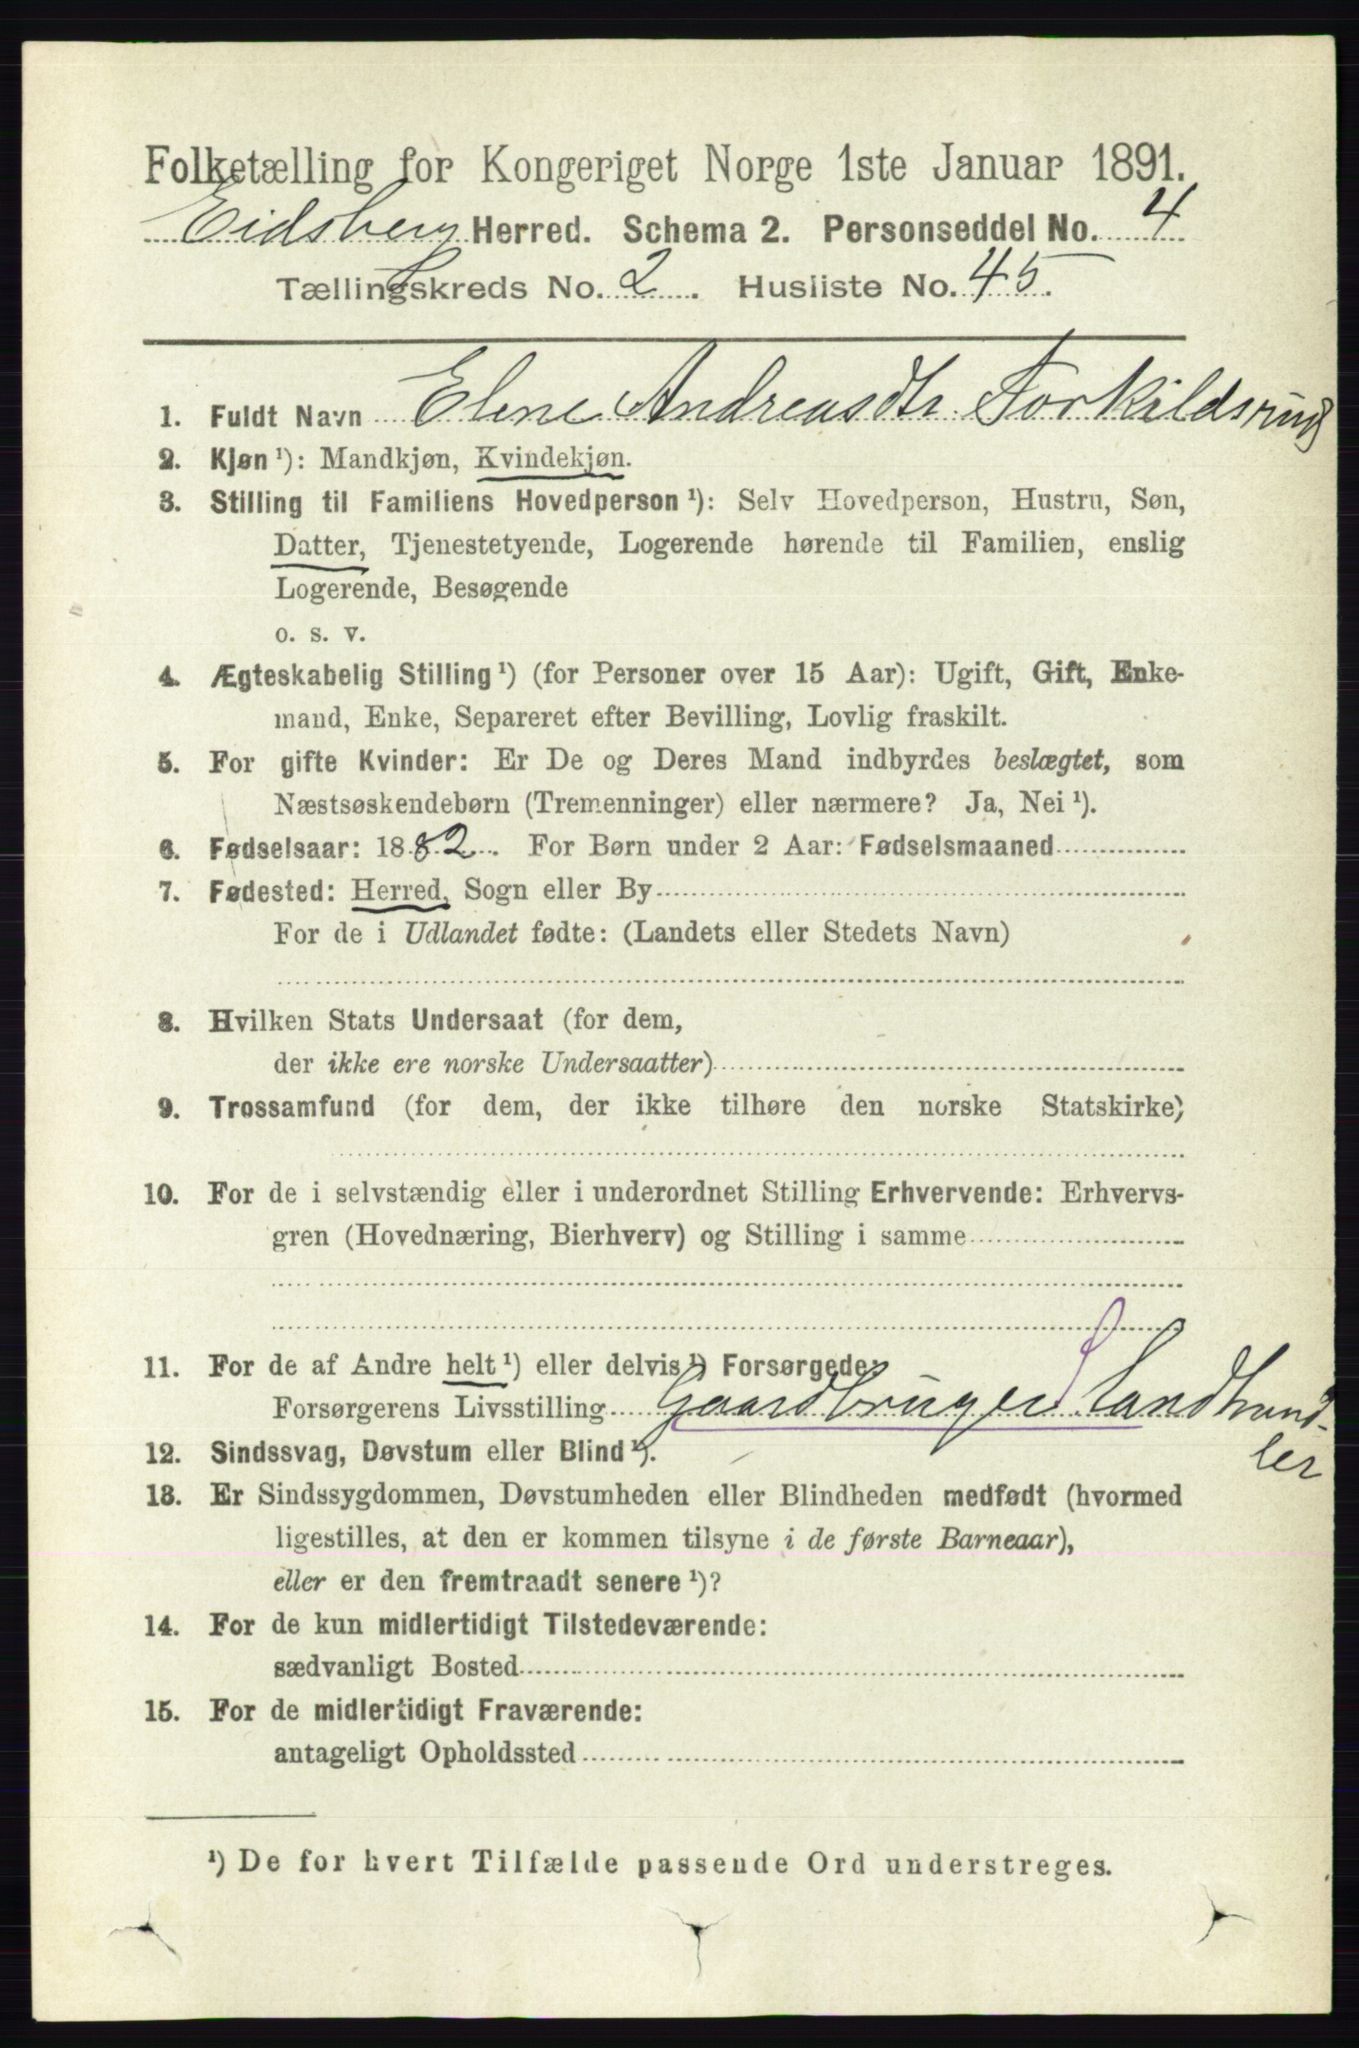 Folketælling for Kongeriget Norge 1ste Januar 1891.
Eidsberg Herred. Schema 2. Personseddel No. 4
Tællingskreds No. 2. Husliste No. 45.
1. Fuldt Navn Elene Andreasdtr. Torkildsrud
2. Kjøn ¹): Mandkjøn, Kvindekjøn.
3. Stilling til Familiens Hovedperson ¹): Selv Hovedperson, Hustru, Søn,
Datter, Tjenestetyende, Logerende hørende til Familien, enslig
Logerende, Besøgende
o. s. v.
4. Ægteskabelig Stilling ¹) (for Personer over 15 Aar): Ugift, Gift, Enke-
mand, Enke, Separeret efter Bevilling, Lovlig fraskilt.
5. For gifte Kvinder: Er De og Deres Mand indbyrdes beslægtet, som
Næstsøskendebørn (Tremenninger) eller nærmere? Ja, Nei ¹).
6. Fødselsaar: 1882. For Børn under 2 Aar: Fødselsmaaned
7. Fødested: Herred, Sogn eller By
For de i Udlandet fødte: (Landets eller Stedets Navn)
8. Hvilken Stats Undersaat (for dem,
der ikke ere norske Undersaatter)
9. Trossamfund (for dem, der ikke tilhøre den norske Statskirke)
10. For de i selvstændig eller i underordnet Stilling Erhvervende: Erhvervs-
gren (Hovednæring, Bierhverv) og Stilling i samme
11. For de af Andre helt ¹) eller delvis ¹) Forsørgede:
Forsørgerens Livsstilling Gaardbruger Landhand-
ler
12. Sindssvag, Døvstum eller Blind ¹).
13. Er Sindssygdommen, Døvstumheden eller Blindheden medfødt (hvormed
ligestilles, at den er kommen tilsyne i de første Barneaar),
eller er den fremtraadt senere ¹)?
14. For de kun midlertidigt Tilstedeværende:
sædvanligt Bosted
15. For de midlertidigt Fraværende:
antageligt Opholdssted
¹) De for hvert Tilfælde passende Ord understreges.